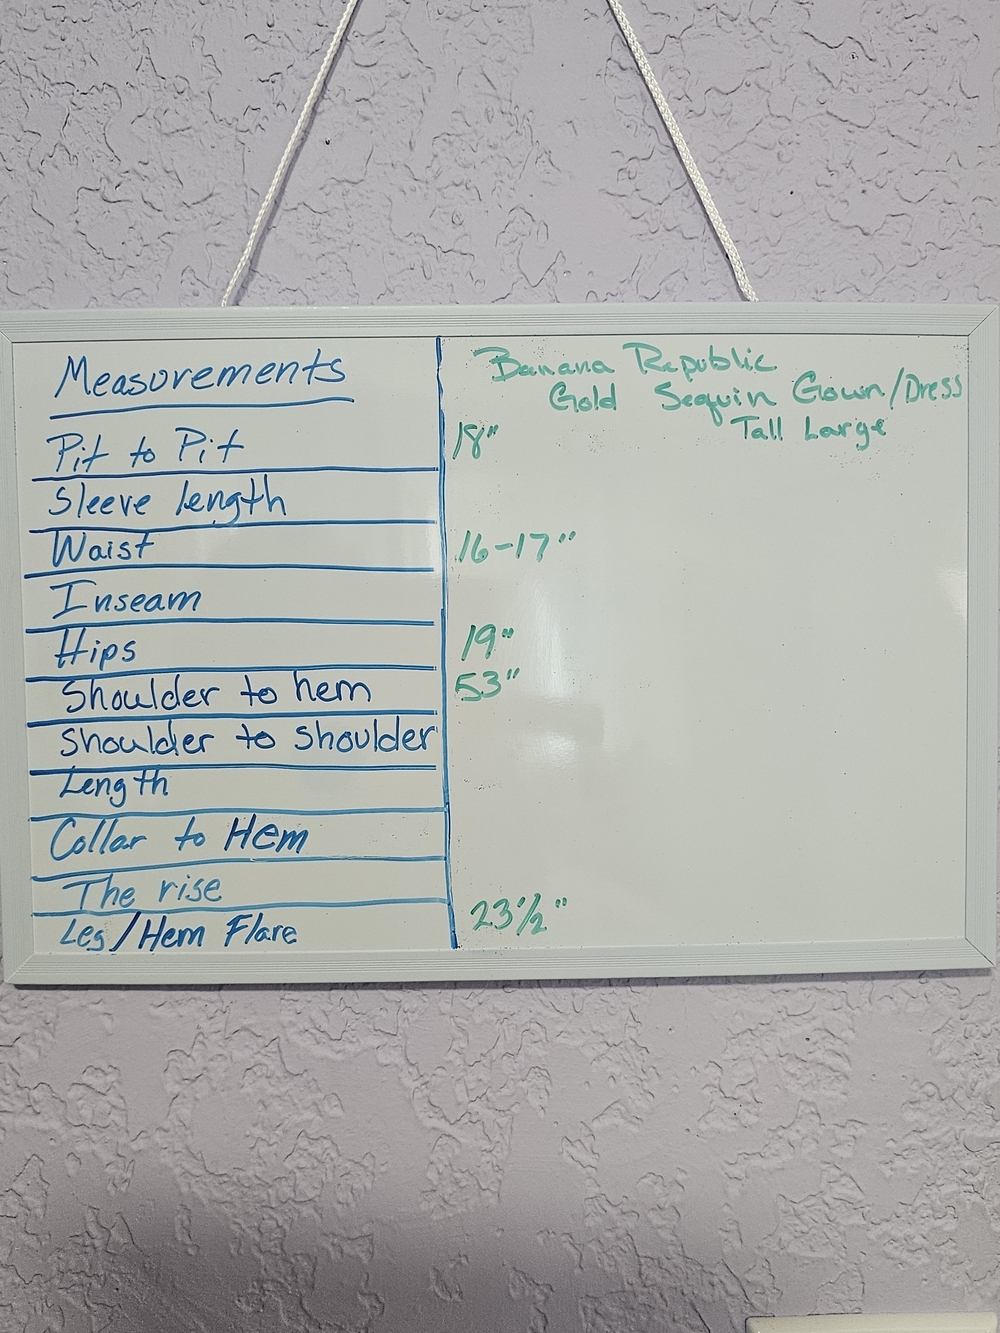 Measurements
Banana Republic
Gold Sequin Gown/Dress
Tall Large
Pit to Pit 18"
Sleeve length
Waist 16-17"
Inseam
Hips 19"
Shoulder to hem 53"
Shoulder to shoulder
Length
Collar to Hem
The rise
Leg/Hem Flare 23½"